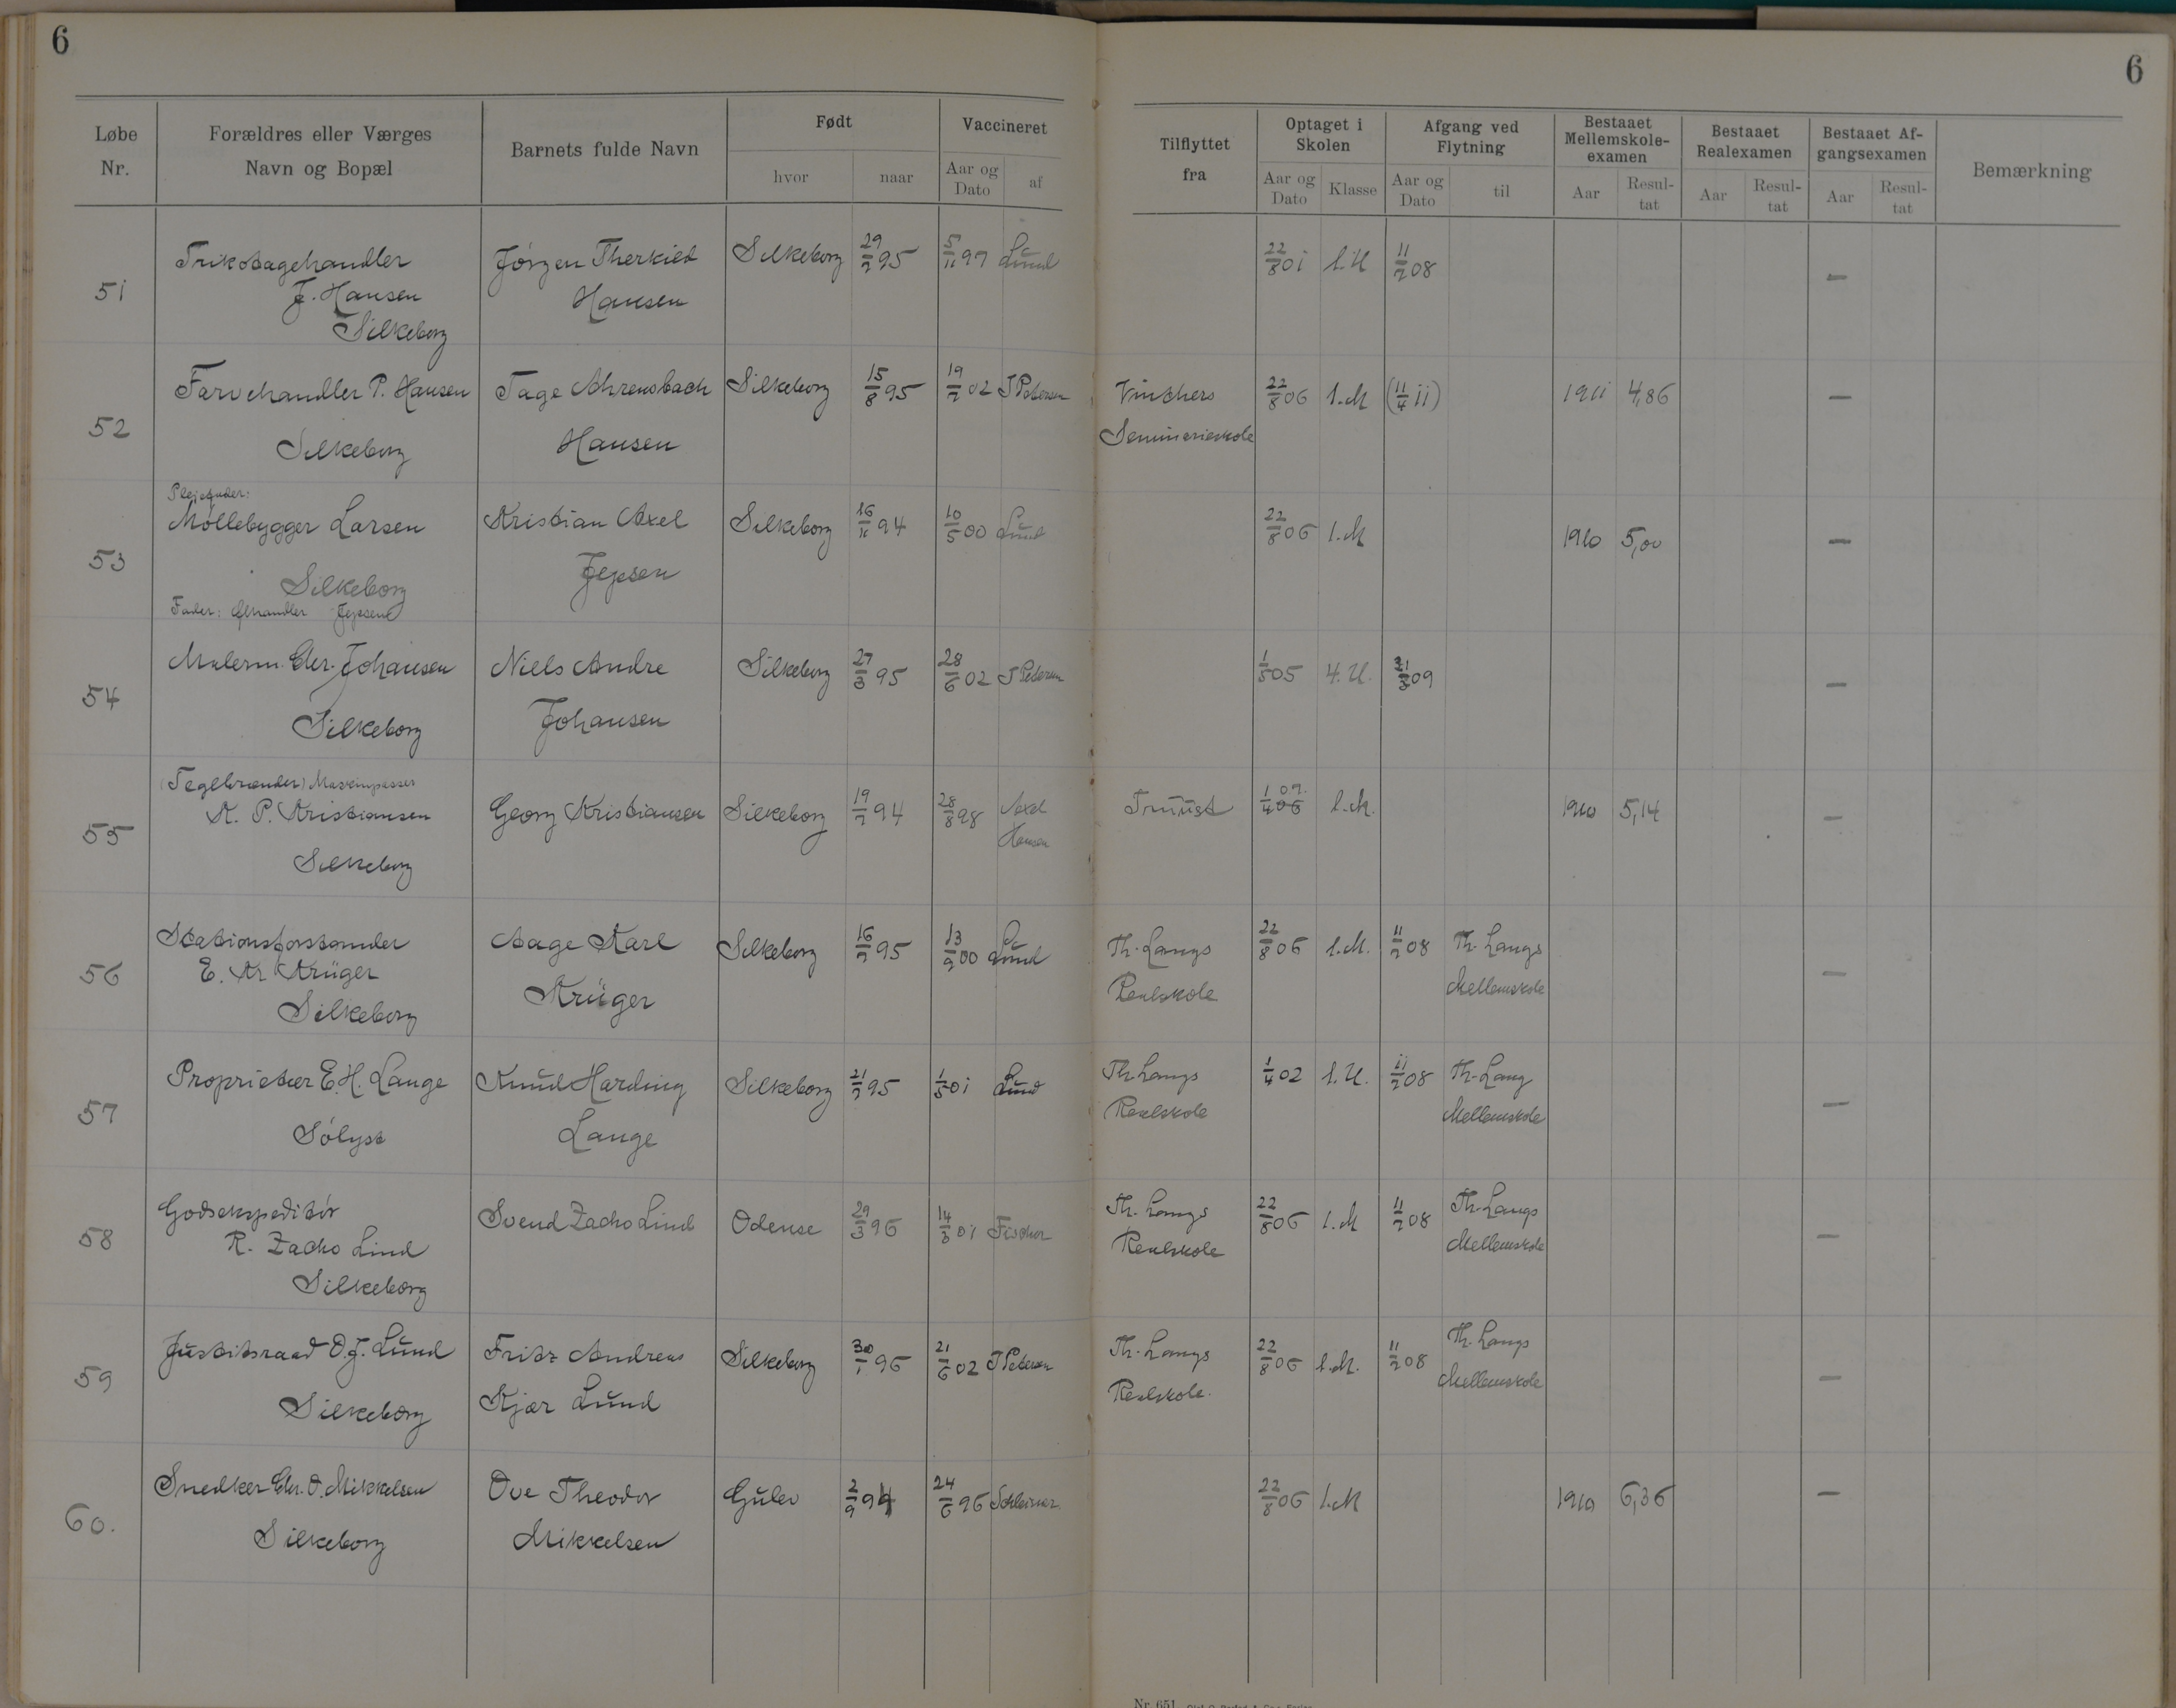 6
6
Løbe Nr.
Forældres eller Værges Navn og Bopæl
Barnets fulde Navn
Født
hvor
naar
Vaccineret
Aar og Dato
af
Tilflyttet fra
Optaget i Skolen
Aar og Dato
Klasse
Afgang ved Flytning
Aar og Dato
til
Bestaaet Mellemskole-examen
Aar
Resul-tat
Bestaaet Realexamen
Aar
Resul-tat
Bestaaet Af-gangsexamen
Aar
Resul-tat
Bemærkning
51 Trikotagehandler Jørgen Therkild Silkeborg 29/7 95 5/11 97 Lund 22/8 01 1.U 11/7 08 —
J. Hansen Hansen
Silkeborg
52 Farvehandler P. Hansen Tage Ahrensbach Silkeborg 15/8 95 19/7 02 J Petersen Vinthers 22/8 06 1.M (11/4 11) 1911 4,86 —
Silkeborg Hansen Seminarieskole
Plejefader:
53 Møllebygger Larsen Kristian Axel Silkeborg 16/11 94 10/5 00 Lund 22/8 06 1.M 1910 5,00 —
Silkeborg Jepsen
Fader: Jepsen
54 Malerm. Chr. Johansen Niels Andre Silkeborg 27/3 95 28/6 02 J Petersen 1/5 05 4.U. 31/3 09 —
Silkeborg Johansen
(Teglbrænder) Maskinpasser
55 K. P. Kristiansen Georg Kristiansen Silkeborg 19/7 94 28/8 98 Axel Hansen Truust 1/4 06 07. 1.M. 1910 5,14 —
Silkeborg
56 Stationsforstander Aage Karl Silkeborg 16/7 95 13/9 00 Lund Th. Langs 22/8 06 1.M. 11/7 08 Th. Langs —
E. Kr Krüger Krüger Realskole Mellemskole
Silkeborg
57 Proprietær E. H. Lange Knud Harding Silkeborg 21/7 95 1/5 01 Lund Th Langs 1/4 02 1.U. 11/7 08 Th. Lang —
Sølyst Lange Realskole Mellemskole
58 Godsekspeditør Svend Zacho Lind Odense 29/3 96 14/3 01 Fischer Th. Langs 22/8 06 1.M 11/7 08 Th. Langs —
R. Zacho Lind Realskole Mellemskole
Silkeborg
59 Justitsraad O. J. Lund Fritz Andreas Silkeborg 30/1 96 21/6 02 J Petersen Th. Langs 22/8 06 1.M. 11/7 08 Th. Langs —
Silkeborg Kjær Lund Realskole. Mellemskole
60. Snedker Chr. O. Mikkelsen Ove Theodor Gulev 2/9 94 24/6 96 Schleisner 22/8 06 1.M 1910 6,36 —
Silkeborg Mikkelsen
Nr. 651